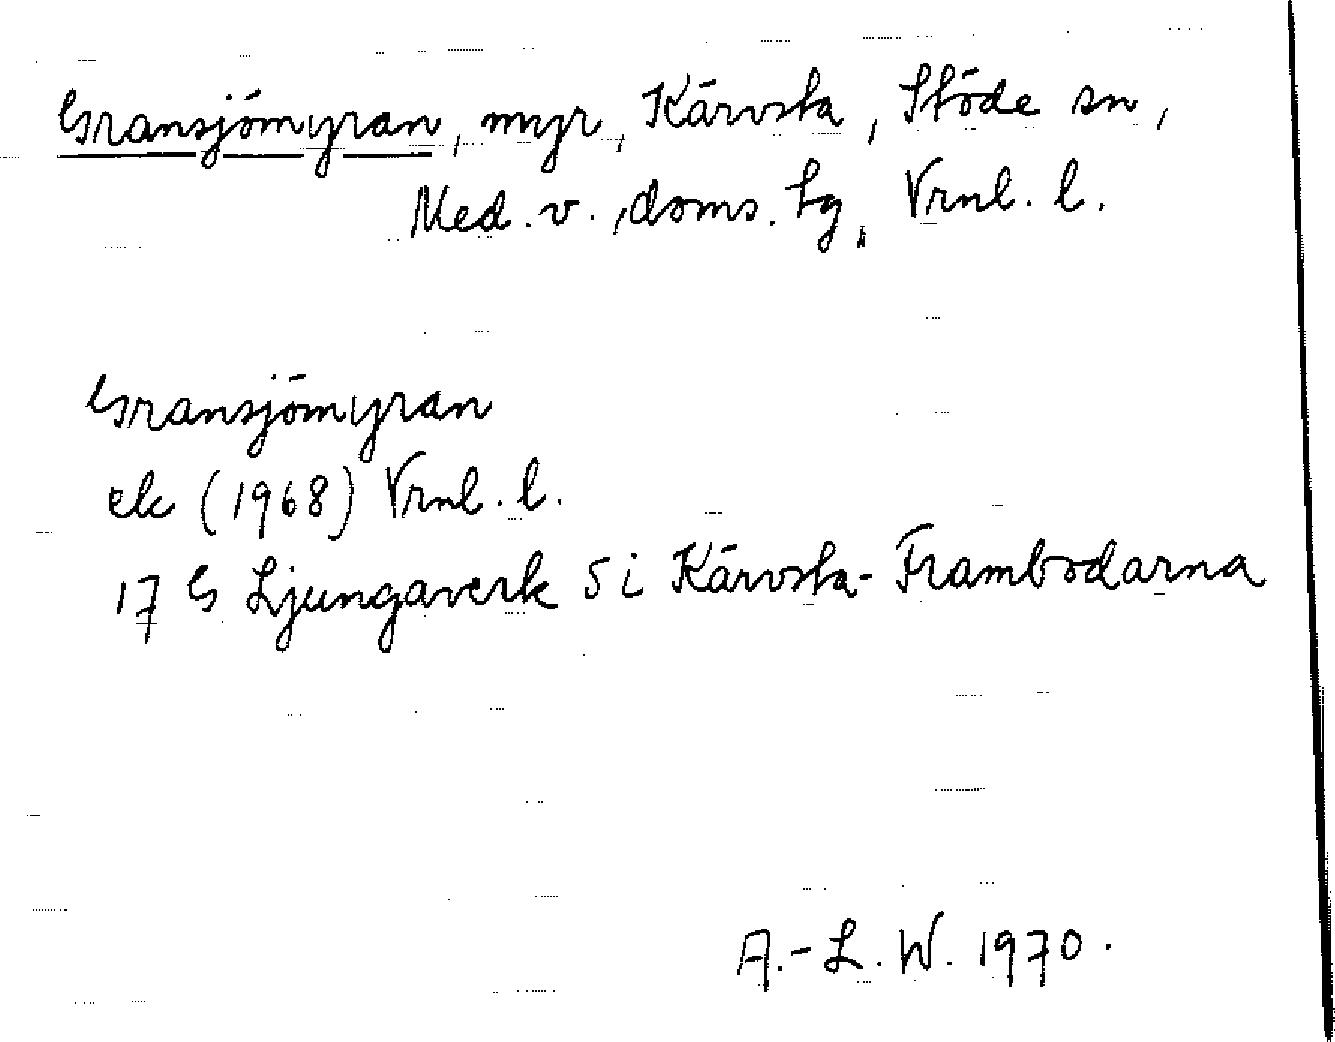 Gransjömyran, myr, Kärvsta, Stöde sn,
Med. v., doms. tg, Vrnl. l.
Gransjömyran
ek (1968) Vrnl. l.
17 G Ljungaverk 5 i Kärvsta-Frambodarna
A.-L. W. 1970.